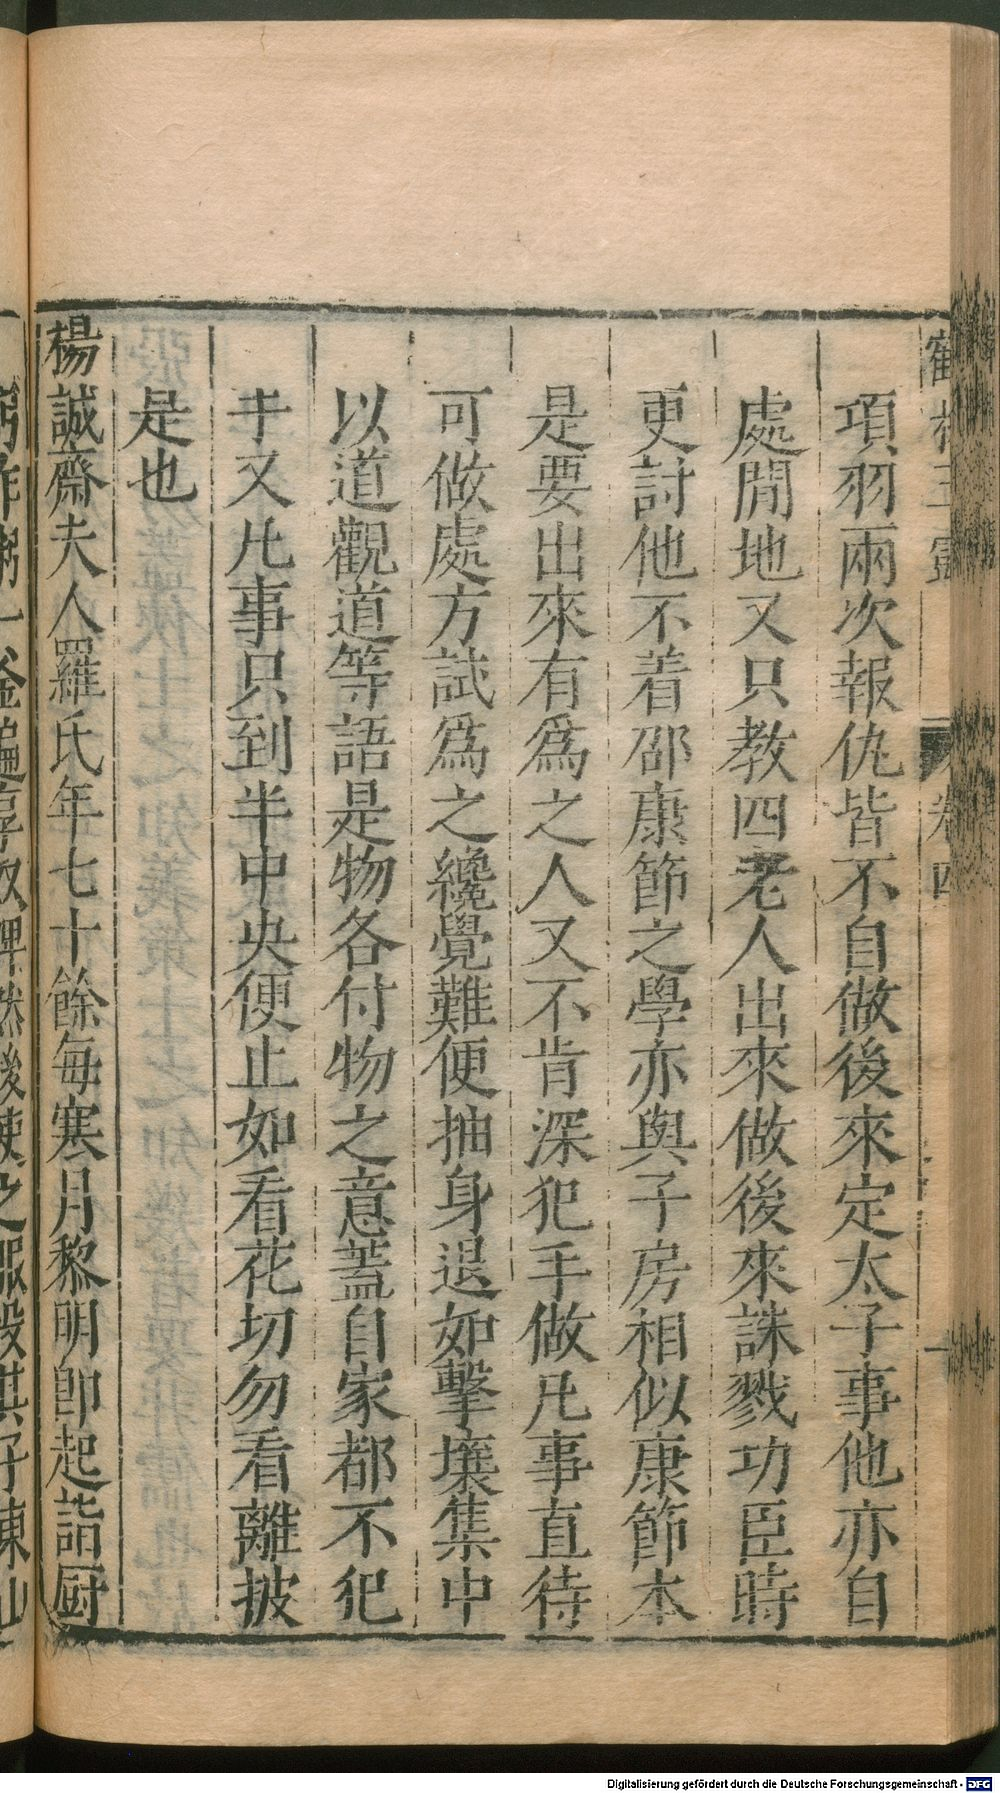 項羽兩次報仇皆不自做後來定太子事他亦自
處閒地又只教四老人出來做後來誅戮功臣時
更討他不着邵康節之學亦與子房相似康節本
是要出來有爲之人又不肯深犯手做凡事直待
可做處方試爲之纔覺難便抽身退如擊壤集中
以道觀道等語是物各付物之意蓋自家都不犯
手又凡事只到半中央便止如看花切勿看離披
是也
楊誠齋夫人羅氏年七十餘每寒月黎明卽起詣厨
卷四
Digitalisierung gefördert durch die Deutsche Forschungsgemeinschaft - DFG